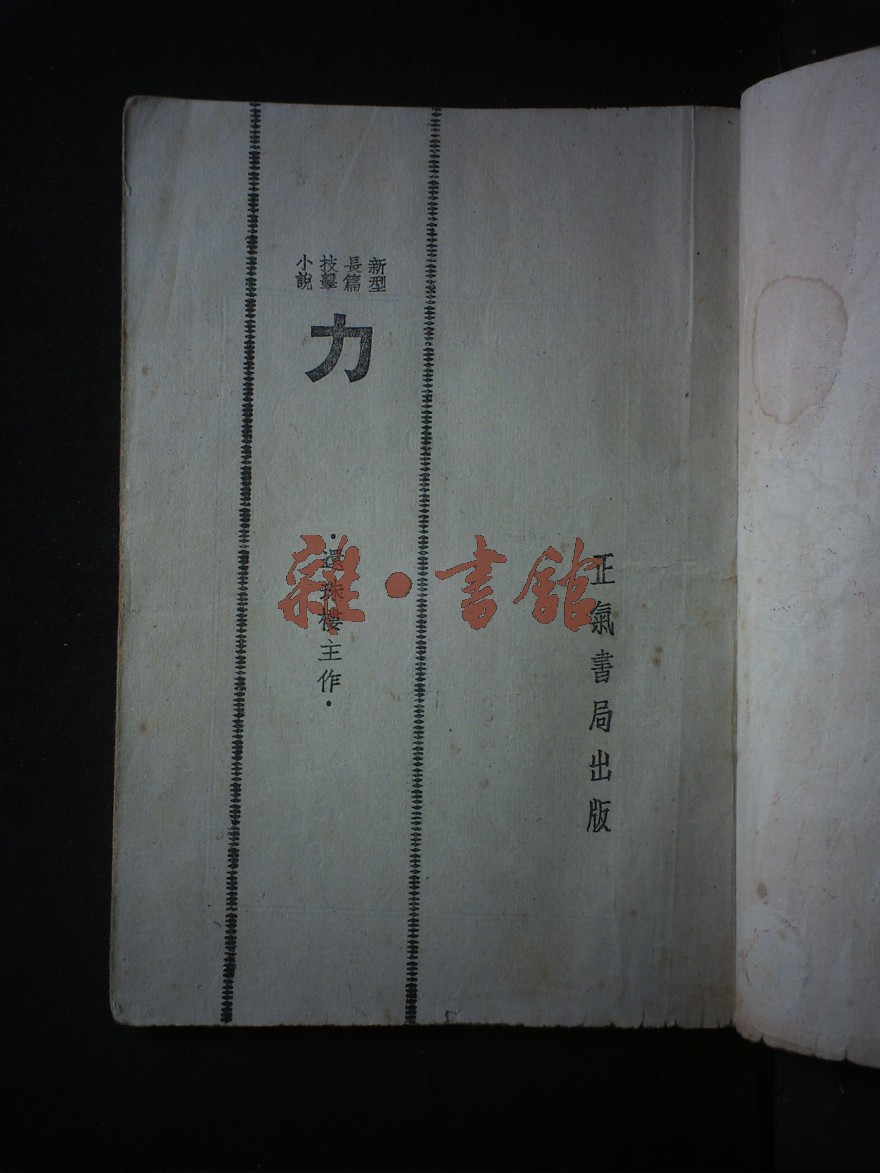 新型
長篇
技擊
小說
力
·還珠樓主作·
正氣書局出版
雜·書館